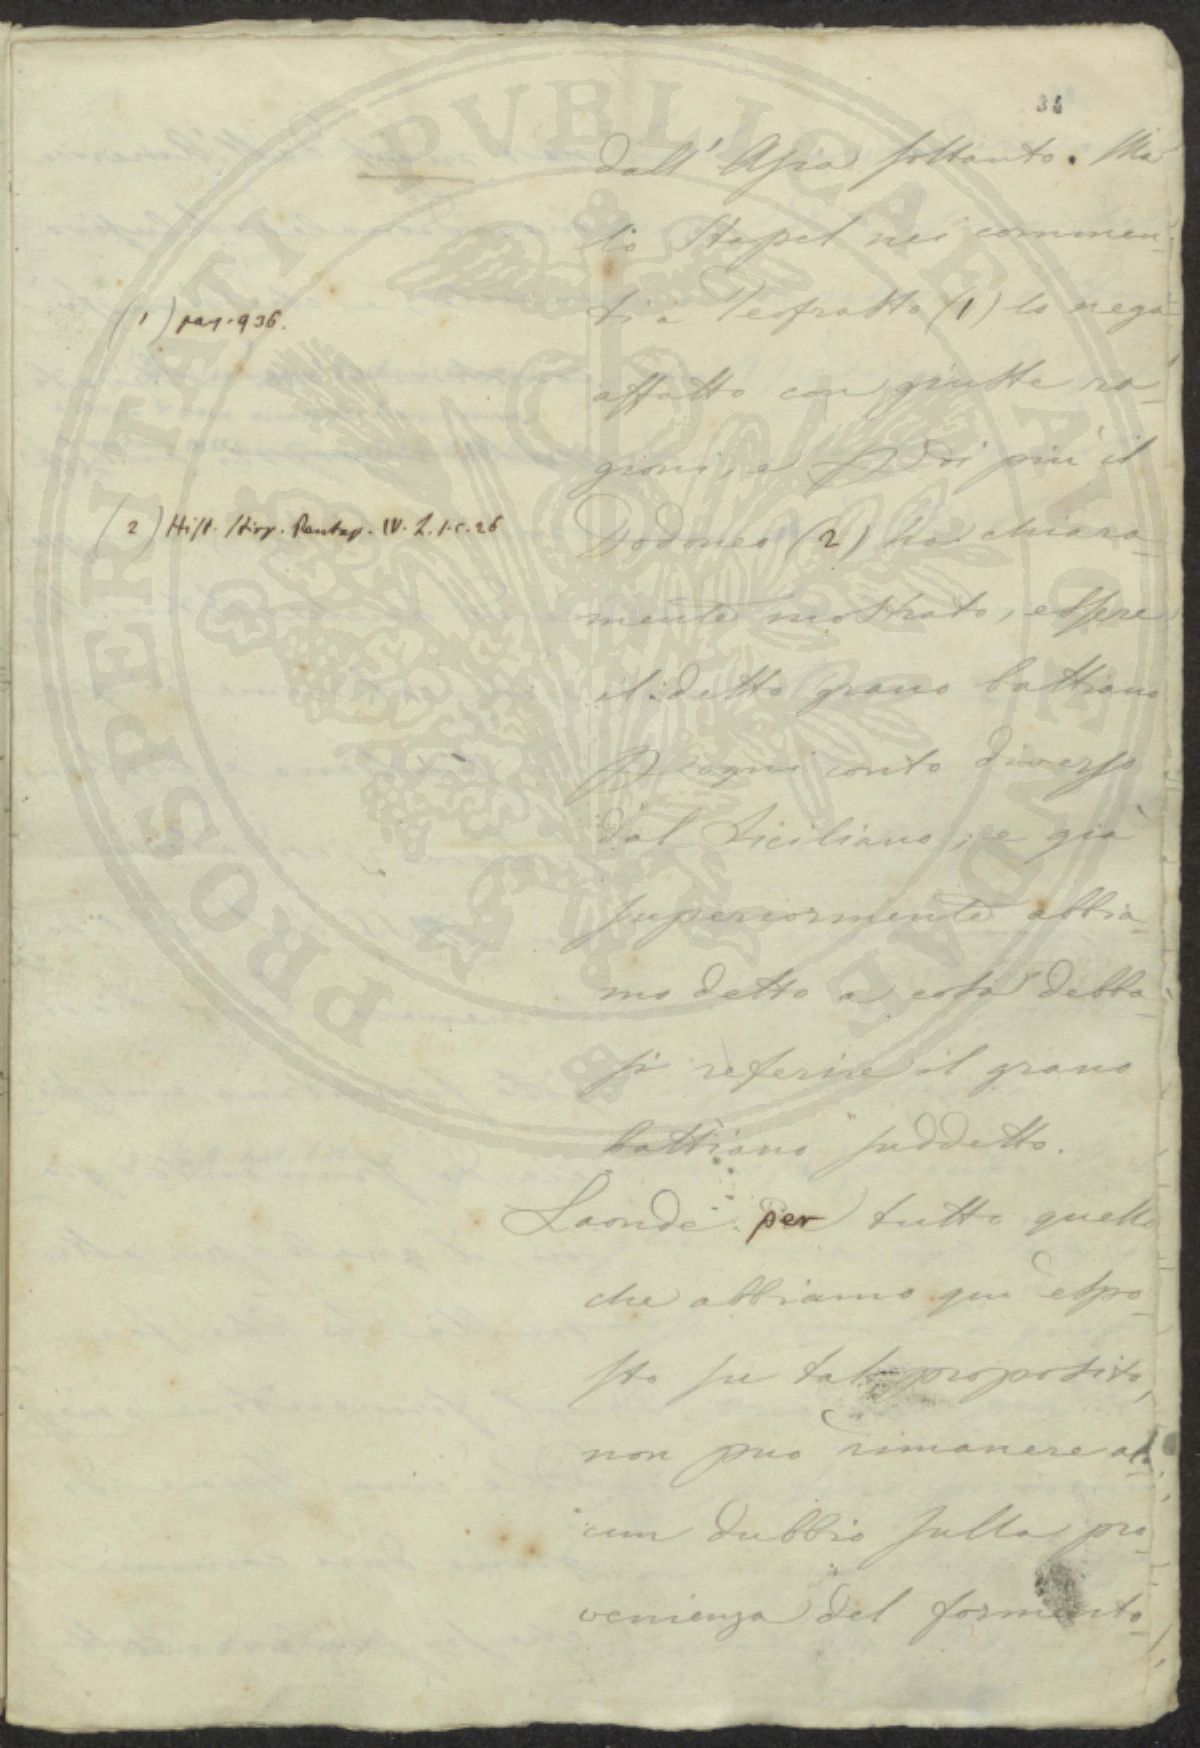 34
dall' Asia soltanto. Ma
lo Stapel nei commen-
ti a Teofrasto (1) lo nega
affatto con giuste ra-
gioni, e di più il
Dodoneo (2) ha chiara-
mente mostrato, essere
il detto grano battriano
ogni conto diverso
dal Siciliano; e già
superiormente abbia-
mo detto a cosa debba-
si referire il grano
battriano suddetto.
Laonde per tutto quello
che abbiamo qui espo-
sto su tal proposito,
non può rimanere al-
cun dubbio sulla pro-
venienza del formento-
(1) pag. 936.
(2) Hist. Stirp. Pentap. IV. L. 1. c. 26
PROSPERITATI PVBLICAE AVGENDAE